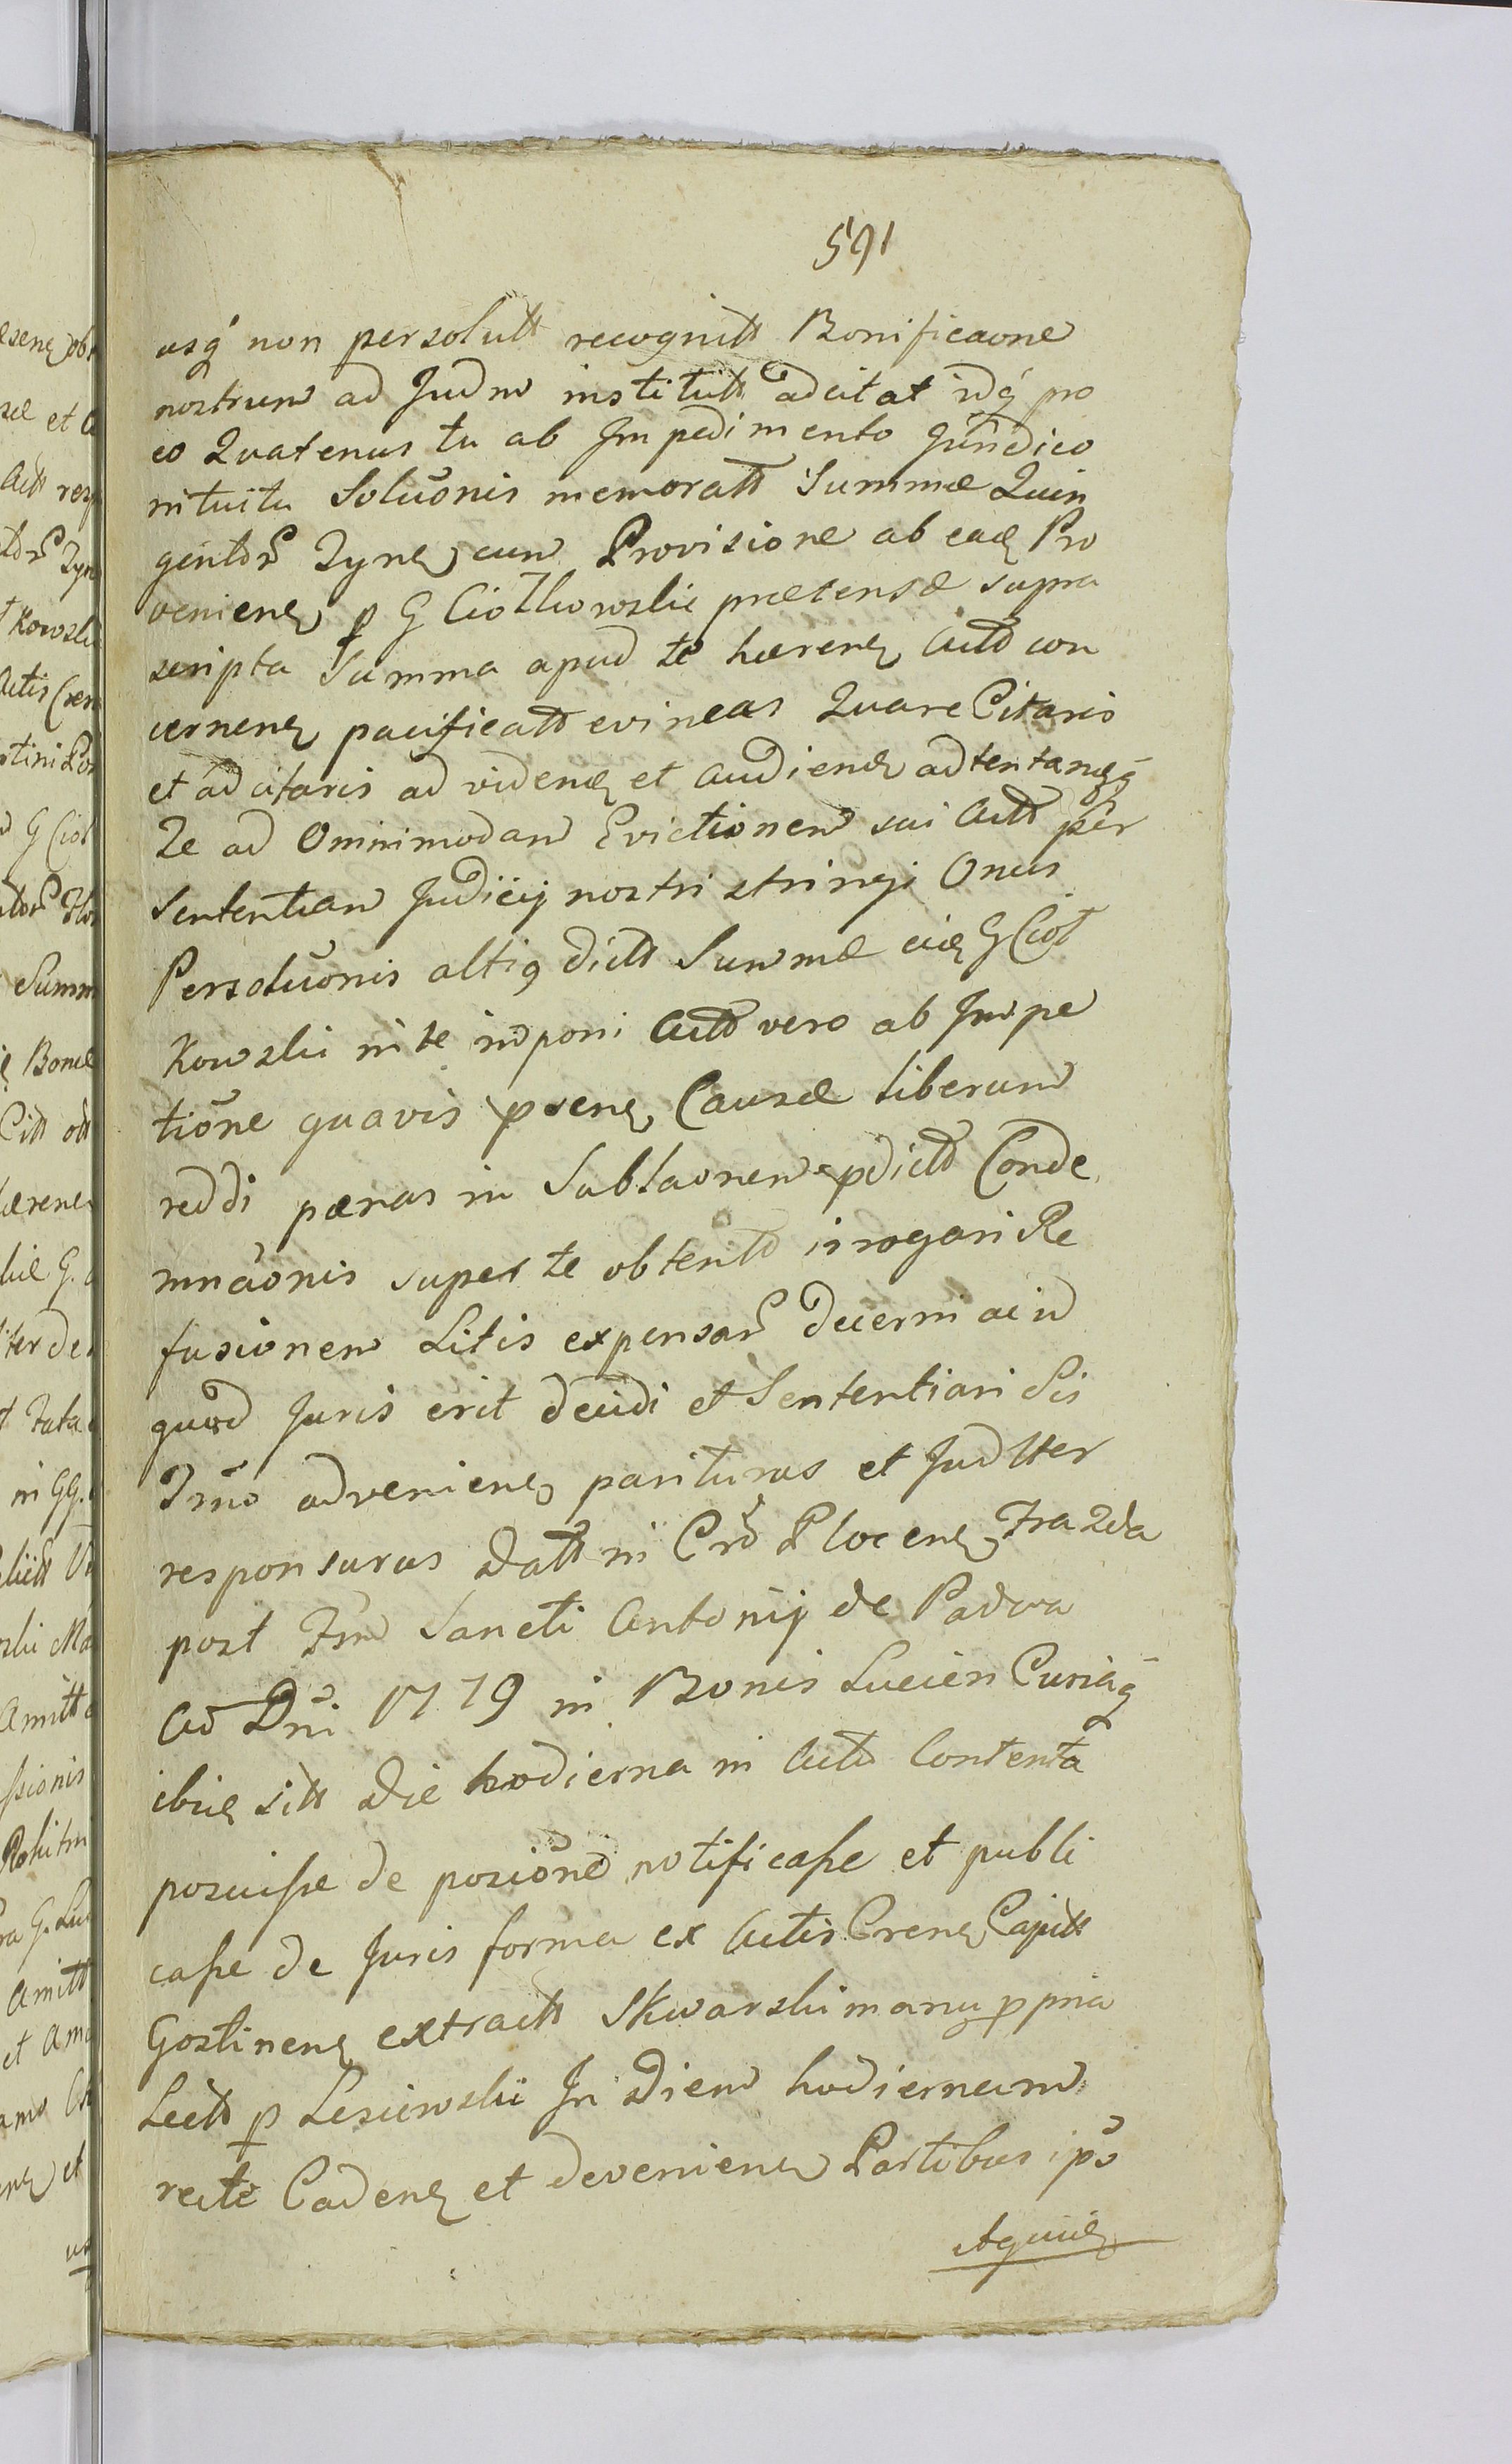 591
usq̃ non persolutt recognitt Bonificaone
nostrum ad Judm institutt adcitat idq̃ pro
eo Quatenus tu ab Impedimento Juridico
intuitu Soluõnis memoratt Summæ Quin
gentor̃ Tynf cum Provisione ab eadę Pro
venienę p G Ciołkowskie prætensæ supra
scripta Summa apud te hærenę Actt con
cernenę pacificatt evincas Quare Citaris
et adcitaris ad videnę et audienę adtentanęq̃
Te ad Omnimodam Evictionem sui Actt per
Sententiam Judicij nostri stringi Onus
Persoluõnis altiq dictt Summæ eię G Cioł
kowskii in te imponi Actt vero ab Impe
tiõne quavis pseną Causæ liberum
reddi pænas in Sublaonem pdictt Conde
mnãonis super te obtentt irrogari Re
fusionem Litis expensar̃ decerni ac id
quod Juris erit decidi et Sententiari Sis
Tmõ advenienę pariturus et Judltter
responsurus Datt in Crõ Plocenę Fra 2da
post Fm Sancti Antonij de Padua
Aõ Dni 1779 in Bonis Lucień Curiaq̃
ibię sitt die hodierna in Actu Contenta
posuisse de posiõne notificasse et publi
casse de Juris forma ex Actis Crenę Capitt
Gostinenę extractt Skwarski manu ppria
Lectt p Lesiewskii In Diem hodiernam
recte Cadenę et devenienę Partibus ips